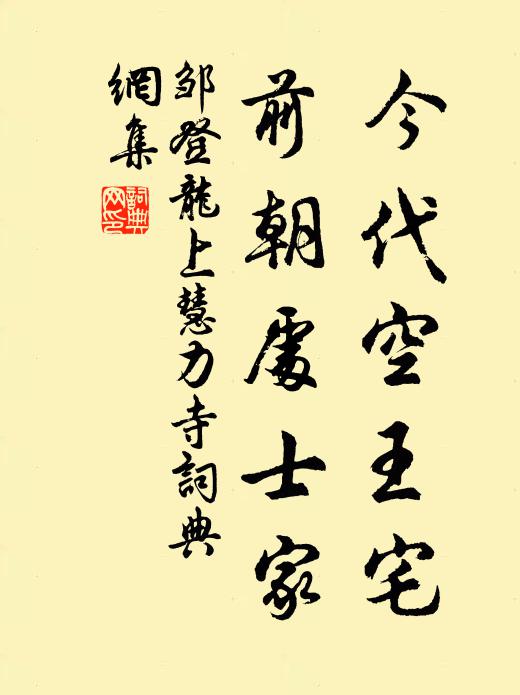 今代空王宅
前朝處士家
邹登龍上慧力寺詞典
網集
詞典
网印